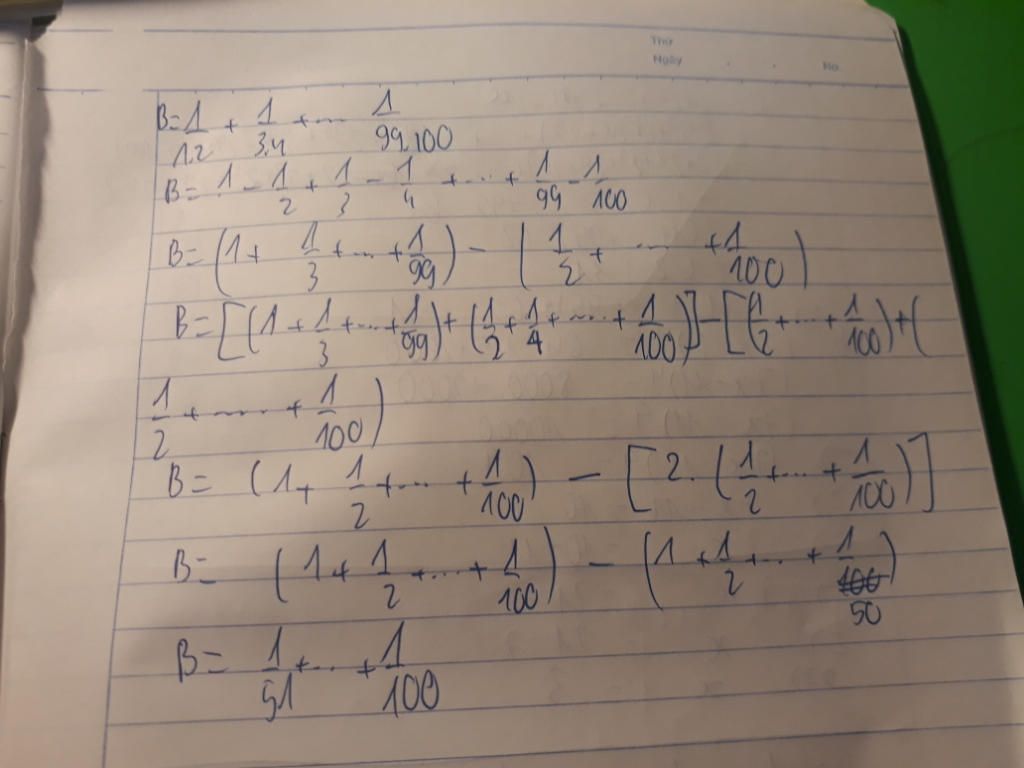 Thứ
Ngày . . No.
B = 1/1.2 + 1/3.4 + ... 1/99.100
B = 1 - 1/2 + 1/3 - 1/4 + ... + 1/99 - 1/100
B = (1 + 1/3 + ... + 1/99) - (1/2 + ... + 1/100)
B = [(1 + 1/3 + ... + 1/99) + (1/2 + 1/4 + ... + 1/100)] - [(1/2 + ... + 1/100) + (
1/2 + ... + 1/100)
B = (1 + 1/2 + ... + 1/100) - [2. (1/2 + ... + 1/100)]
B = (1 + 1/2 + ... + 1/100) - (1 + 1/2 + ... + 1/50)
B = 1/51 + ... + 1/100